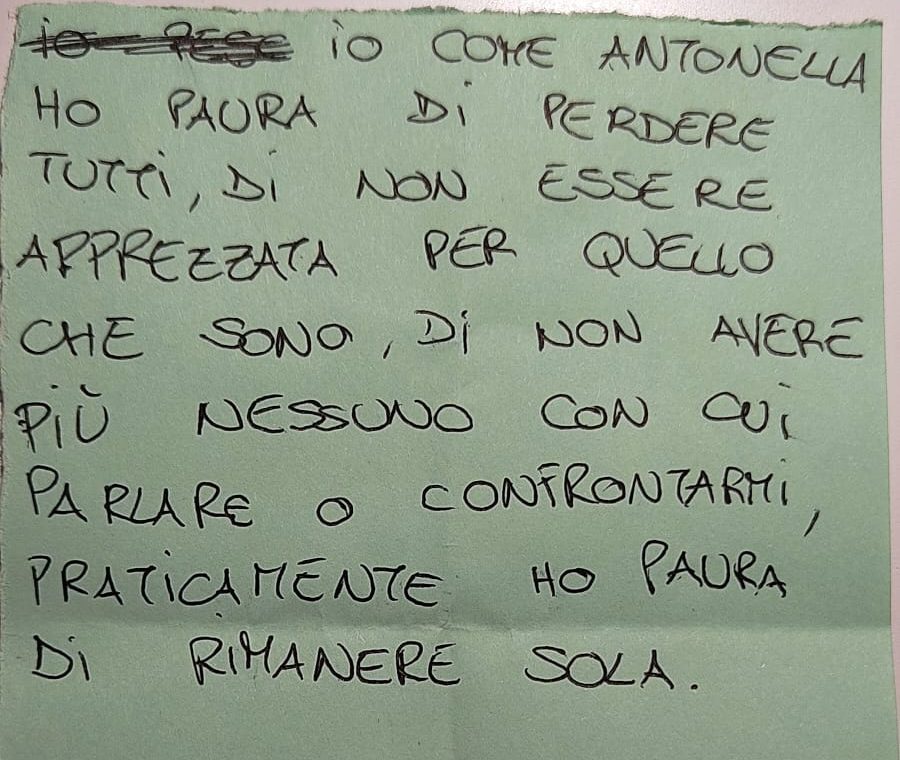 io COME ANTONELLA
HO PAURA Di PERDERE
TUTTi, Di NON ESSERE
APPREZZATA PER QUELLO
CHE SONO, Di NON AVERE
PiÙ NESSUNO CON CUi
PARLARE O CONFRONTARMi,
PRATiCAMENTE HO PAURA
Di RiMANERE SOLA.